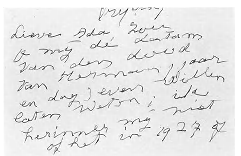 Lieve Ida, Zou
je mij de datum
van den dood
van Herman, jaar
en dag, even willen
laten weten, ik
herinner mij niet
of het in 1927 of